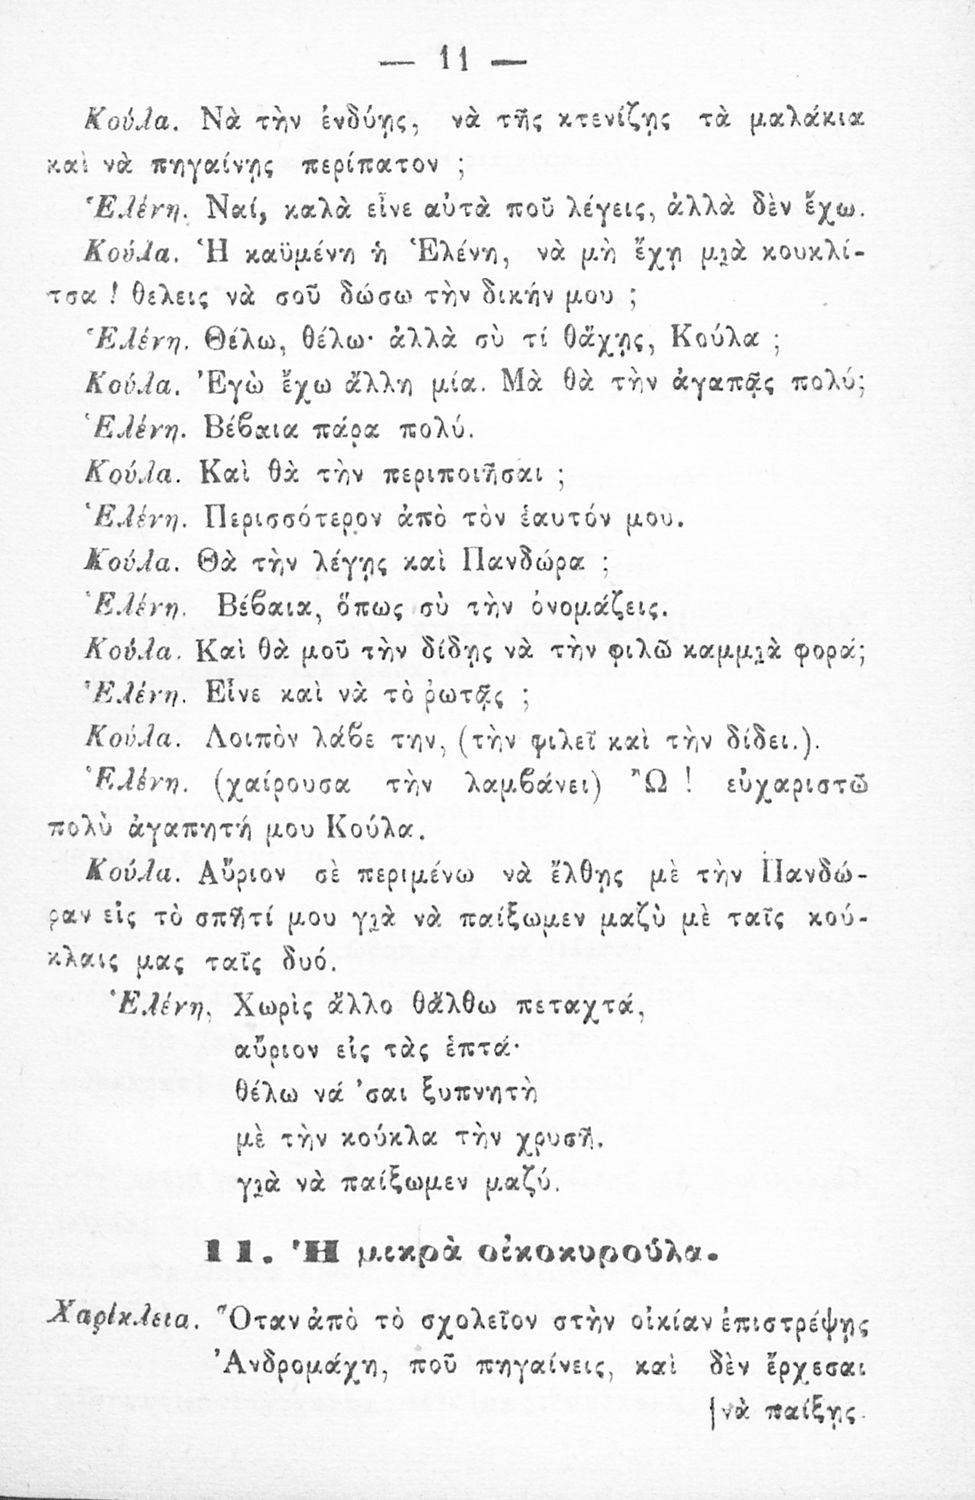 — 11 —
Κούλα. Νὰ τὴν ἐνδύῃς, νὰ τῆς κτενίζῃς τὰ μαλάκια
καὶ νὰ πηγαίνῃς περίπατον ;
Ἑλένη. Ναί, καλὰ εἶνε αὐτὰ ποῦ λέγεις, ἀλλὰ δὲν ἔχω.
Κούλα. Ἡ καϋμένη ἡ Ἑλένη, νὰ μὴ ἔχῃ μιὰ κουκλί-
τσα ! θελεις νὰ σοῦ δώσω τὴν δικήν μου ;
Ἑλένη. Θέλω, θέλω· ἀλλὰ σὺ τί θἄχῃς, Κούλα ;
Κούλα. Ἐγὼ ἔχω ἄλλη μία. Μὰ θὰ τὴν ἀγαπᾷς πολύ;
Ἑλένη. Βέβαια πάρα πολύ.
Κούλα. Καὶ θὰ τὴν περιποιῆσαι ;
Ἑλένη. Περισσότερον ἀπὸ τὸν ἑαυτόν μου.
Κούλα. Θὰ τὴν λέγῃς καὶ Πανδώρα ;
Ἑλένη. Βέβαια, ὅπως σὺ τὴν ὀνομάζεις.
Κούλα. Καὶ θὰ μοῦ τὴν δίδῃς νὰ τὴν φιλῶ καμμιὰ φορά;
Ἑλένη. Εἶνε καὶ νὰ τὸ ῥωτᾷς ;
Κούλα. Λοιπὸν λάβε την, (τὴν φιλεῖ καὶ τὴν δίδει.).
Ἑλένη. (χαίρουσα τὴν λαμβάνει) Ὢ ! εὐχαριστῶ
πολὺ ἀγαπητή μου Κούλα.
Κούλα. Αὔριον σὲ περιμένω νὰ ἔλθῃς μὲ τὴν Πανδώ-
ραν εἰς τὸ σπῆτί μου γιὰ νὰ παίξωμεν μαζὺ μὲ ταῖς κού-
κλαις μας ταῖς δυό.
Ἑλένη, Χωρὶς ἄλλο θἄλθω πεταχτά,
αὔριον εἰς τὰς ἑπτά·
θέλω νά 'σαι ξυπνητὴ
μὲ τὴν κούκλα τὴν χρυσῆ.
γιὰ νὰ παίξωμεν μαζύ.
11. Ἡ μικρὰ οἰκοκυρούλα.
Χαρίκλεια. Ὅταν ἀπὸ τὸ σχολεῖον στὴν οἰκίαν ἐπιστρέψῃς
Ἀνδρομάχη, ποῦ πηγαίνεις, καὶ δὲν ἔρχεσαι
[νὰ παίξῃς.